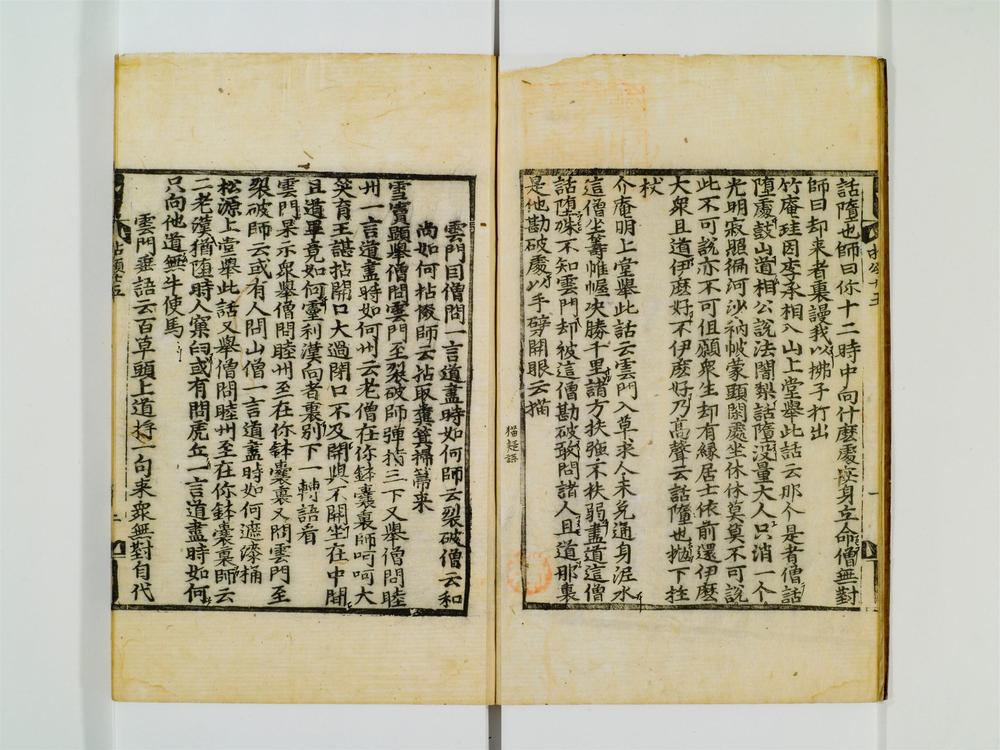 話墮也師曰你十二時中向什麽處安身立命僧無對
師曰却來者裏謾我以拂子打出
竹庵珪因李丞相入山上堂舉此話云那个是者僧話
墮處鼓山道相公說法闍梨話墮没量大人只消一个
光明寂照徧河沙衲帔蒙頭閑處坐休休莫莫不可說
此不可說亦不可但願衆生却有緣居士依前還伊麽
大衆且道伊麽好不伊麽好乃高聲云話墮也擲下拄
杖
介庵明上堂舉此話云雲門入草求人未免通身泥水
這僧坐籌帷幄决勝千里諸方扶強不扶弱盡道這僧
話墮殊不知雲門却被這僧勘破敢問諸人且道那裏
是他勘破處以手劈開眼云猫
猫疑語
雲門因僧問一言道盡時如何師云裂破僧云和
尚如何拈掇師云拈取糞箕掃箒來
雪竇顯舉僧問雲門至裂破師彈指三下又舉僧問睦
州一言道盡時如何州云老僧在你鉢囊裏師呵呵大
笑育王諶拈開口大過閉口不及開與不開坐在中間
且道畢竟如何靈利漢向者裏別下一轉語看
雲門杲示衆舉僧問睦州至在你鉢囊裏又問雲門至
裂破師云或有人問山僧一言道盡時如何遮漆桶
松源上堂舉此話又舉僧問睦州至在你鉢囊裏師云
二老漢猶墮時人窠臼或有問虎丘一言道盡時如何
只向他道無牛使馬
雲門垂語云百草頭上道將一句來衆無對自代